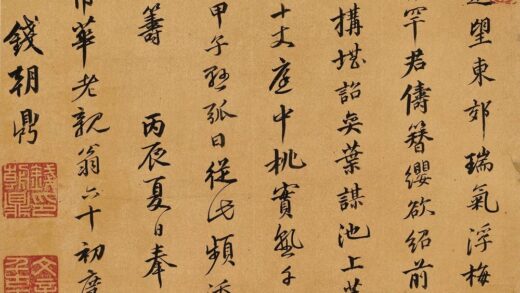 望東郊瑞氣浮梅
罕君儔簪纓欲紹前
搆堪詒奕葉謀池上
十丈庭中桃實熟千
甲子懸弧日從此頻
籌
丙辰夏日奉
華老親翁六十初度
錢朝鼎
錢印朝鼎